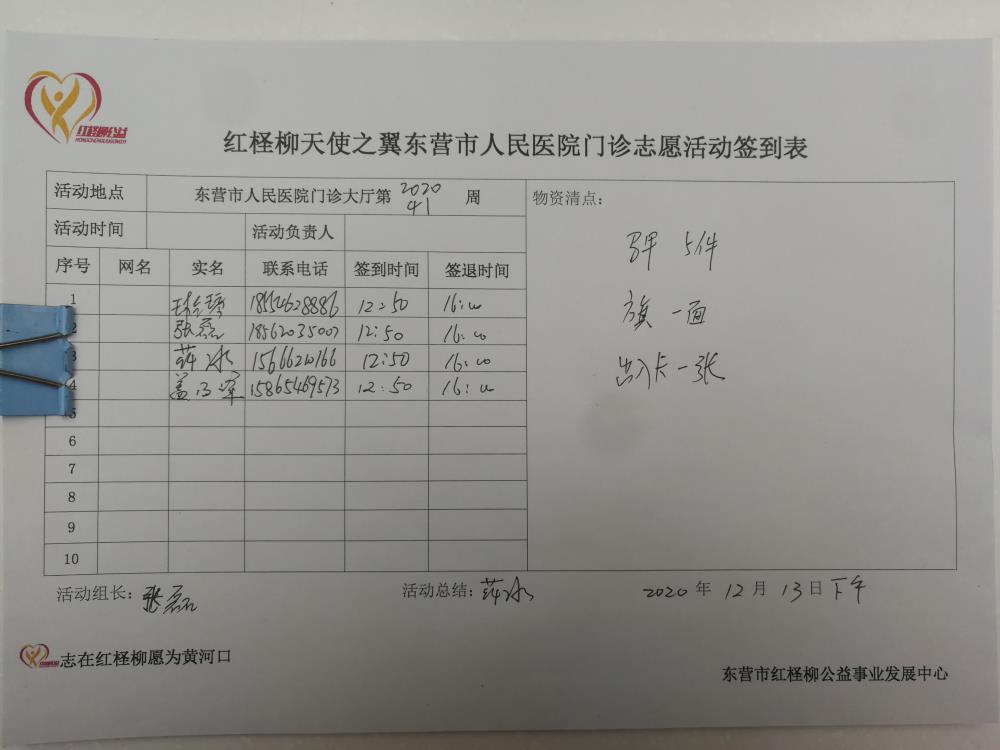 红柽柳公益
HONGCHENGLIUGONGYI
红柽柳天使之翼东营市人民医院门诊志愿活动签到表
活动地点 东营市人民医院门诊大厅第 2020 41 周
活动时间 活动负责人
序号 网名 实名 联系电话 签到时间 签退时间
1 18554628886 12:50 16:00
2 张磊 18562035007 12:50 16:00
3 薛冰 15666210166 12:50 16:00
4 盖 15865469573 12:50 16:00
5
6
7
8
9
10
物资清点:
马甲 5件
旗 一面
出入卡一张
活动组长: 张磊 活动总结: 薛冰 2020 年 12 月 13 日 下午
志在红柽柳愿为黄河口
东营市红柽柳公益事业发展中心